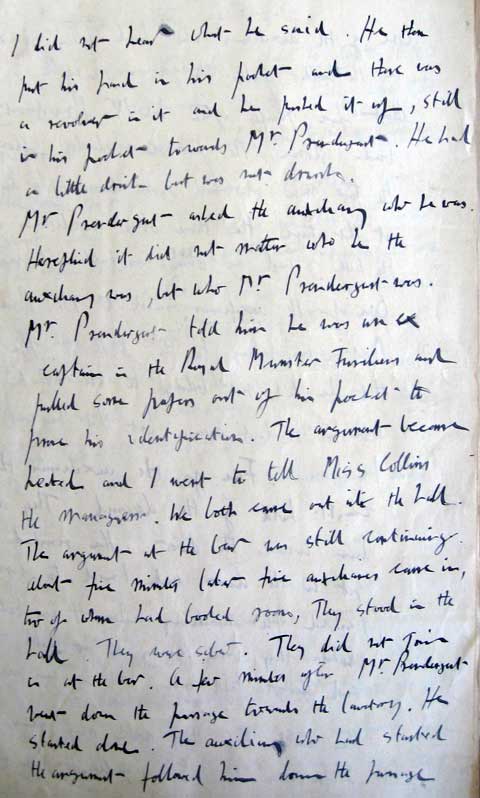 I did not hear what he said. He then
put his hand in his pocket and there was
a revolver in it and he pushed it up, still
in his pocket towards Mr. Prendergast. He had
a little drink but was not drunk.
Mr Prendergast asked the auxiliary who he was.
He replied it did not matter who he the
auxiliary was, but who Mr Prendergast was.
Mr. Prendergast told him he was an ex
captain in the Royal Munster Fusiliers and
pulled some papers out of his pocket to
prove his identification. The argument became
heated and I went to tell Miss Collins
the manageress. We both came out into the hall.
The argument at the bar was still continuing.
about five minutes later five auxiliaries came in,
two of whom had booked rooms, They stood in the
hall. They were sober. They did not join
in at the bar. A few minutes after Mr. Prendergast
went down the passage towards the lavatory. He
started alone. The auxiliary who had started
the argument followed him down the passage